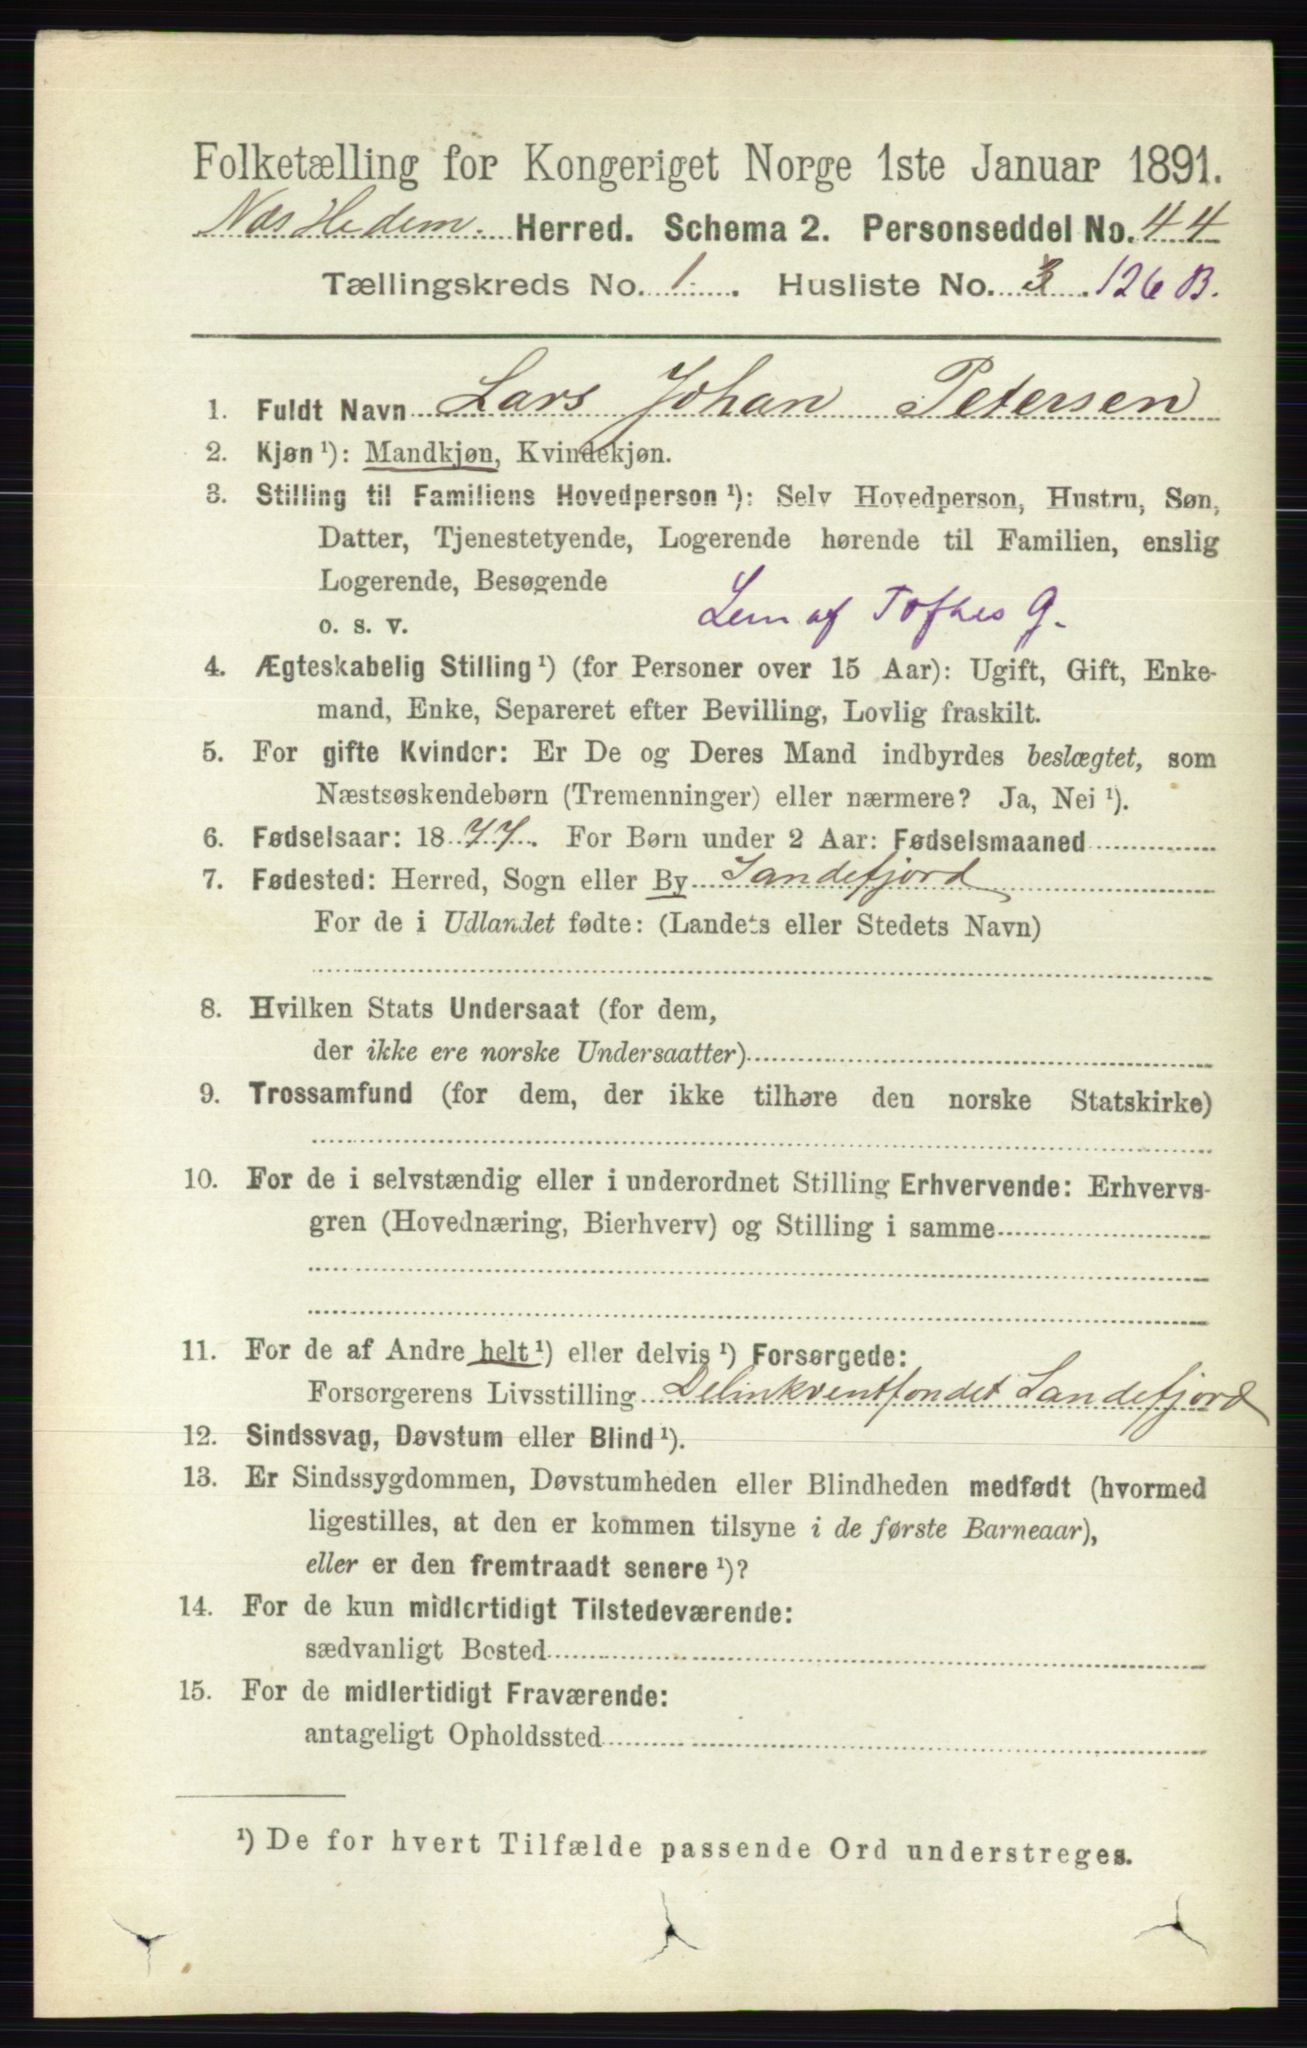 Folketælling for Kongeriget Norge 1ste Januar 1891.
Næs Hedem. Herred. Schema 2. Personseddel No. 44
Tællingskreds No. 1. Husliste No. 3. 126 B.
1. Fuldt Navn Lars Johan Petersen
2. Kjøn ¹): Mandkjøn, Kvindekjøn.
3. Stilling til Familiens Hovedperson ¹): Selv Hovedperson, Hustru, Søn,
Datter, Tjenestetyende, Logerende hørende til Familien, enslig
Logerende, Besøgende
o. s. v. Lem af Toftes G.
4. Ægteskabelig Stilling ¹) (for Personer over 15 Aar): Ugift, Gift, Enke-
mand, Enke, Separeret efter Bevilling, Lovlig fraskilt.
5. For gifte Kvinder: Er De og Deres Mand indbyrdes beslægtet, som
Næstsøskendebørn (Tremenninger) eller nærmere? Ja, Nei ¹).
6. Fødselsaar: 1877. For Børn under 2 Aar: Fødselsmaaned
7. Fødested: Herred, Sogn eller By Sandefjord
For de i Udlandet fødte: (Landets eller Stedets Navn)
8. Hvilken Stats Undersaat (for dem,
der ikke ere norske Undersaatter)
9. Trossamfund (for dem, der ikke tilhøre den norske Statskirke)
10. For de i selvstændig eller i underordnet Stilling Erhvervende: Erhvervs-
gren (Hovednæring, Bierhverv) og Stilling i samme
11. For de af Andre helt ¹) eller delvis ¹) Forsørgede:
Forsørgerens Livsstilling Delinkventfondet Sandefjord
12. Sindssvag, Døvstum eller Blind ¹).
13. Er Sindssygdommen, Døvstumheden eller Blindheden medfødt (hvormed
ligestilles, at den er kommen tilsyne i de første Barneaar),
eller er den fremtraadt senere ¹)?
14. For de kun midlertidigt Tilstedeværende:
sædvanligt Bosted
15. For de midlertidigt Fraværende:
antageligt Opholdssted
¹) De for hvert Tilfælde passende Ord understreges.